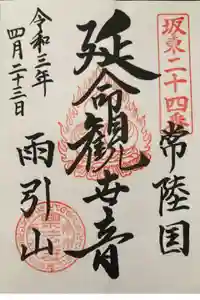 坂東二十四番
常陸国
延命観世音
雨引山
令和三年
四月二十三日